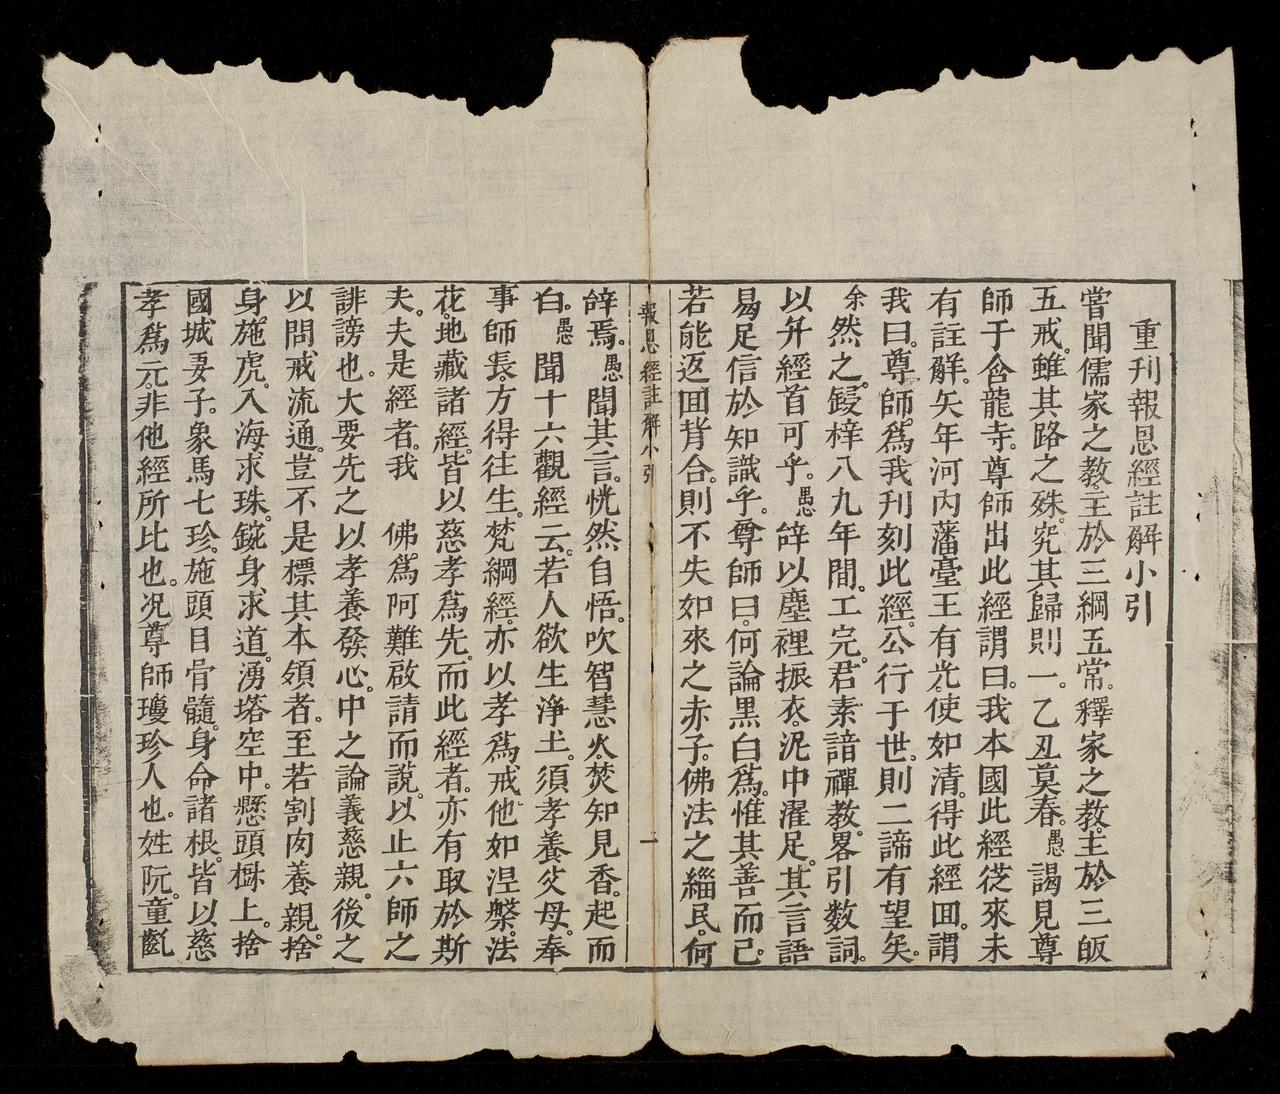 重刊報恩經註解小引
嘗聞儒家之教。主於三綱五常。釋家之教。主於三皈
五戒。雖其路之殊。究其歸則一。乙丑莫春。愚謁見尊
師于含龍寺。尊師出此經謂曰。我本國此經從來未
有註解。矢年河內藩臺王有光。使如清。得此經囬。謂
我曰。尊師。爲我刊刻此經。公行于世。則二諦有望矣。
余然之。鋟梓八九年間。工完。君素諳禪教。畧引数詞。
以弁經首可乎。愚辝以塵裡振衣。泥中濯足。其言語
易足信於知識乎。尊師曰。何論黒白爲。惟其善而已。
若能返囬背合。則不失如來之赤子。佛法之緇民。何
報恩經註解小引
一
辝焉。愚聞其言。恍然自悟。吹智慧火。焚知見香。起而
白。愚聞十六觀經云。若人欲生淨土。須孝養父母。奉
事師長。方得往生。梵綱經。亦以孝爲戒。他如涅槃。法
花。地藏諸經。皆以慈孝爲先。而此經者。亦有取於斯
夫。夫是經者。我　佛。爲阿難啟請而說。以止六師之
誹謗也。大要先之以孝養發心。中之論義慈親。後之
以問戒流通。豈不是標其本領者。至若割肉養親。捨
身施虎。入海求珠。鏇身求道。湧塔空中。懸頭樹上。捨
國城妻子。象馬七珍。施頭目骨髓。身命諸根。皆以慈
孝爲元。非他經所比也。况尊師瓊珍人也。姓阮。童齓